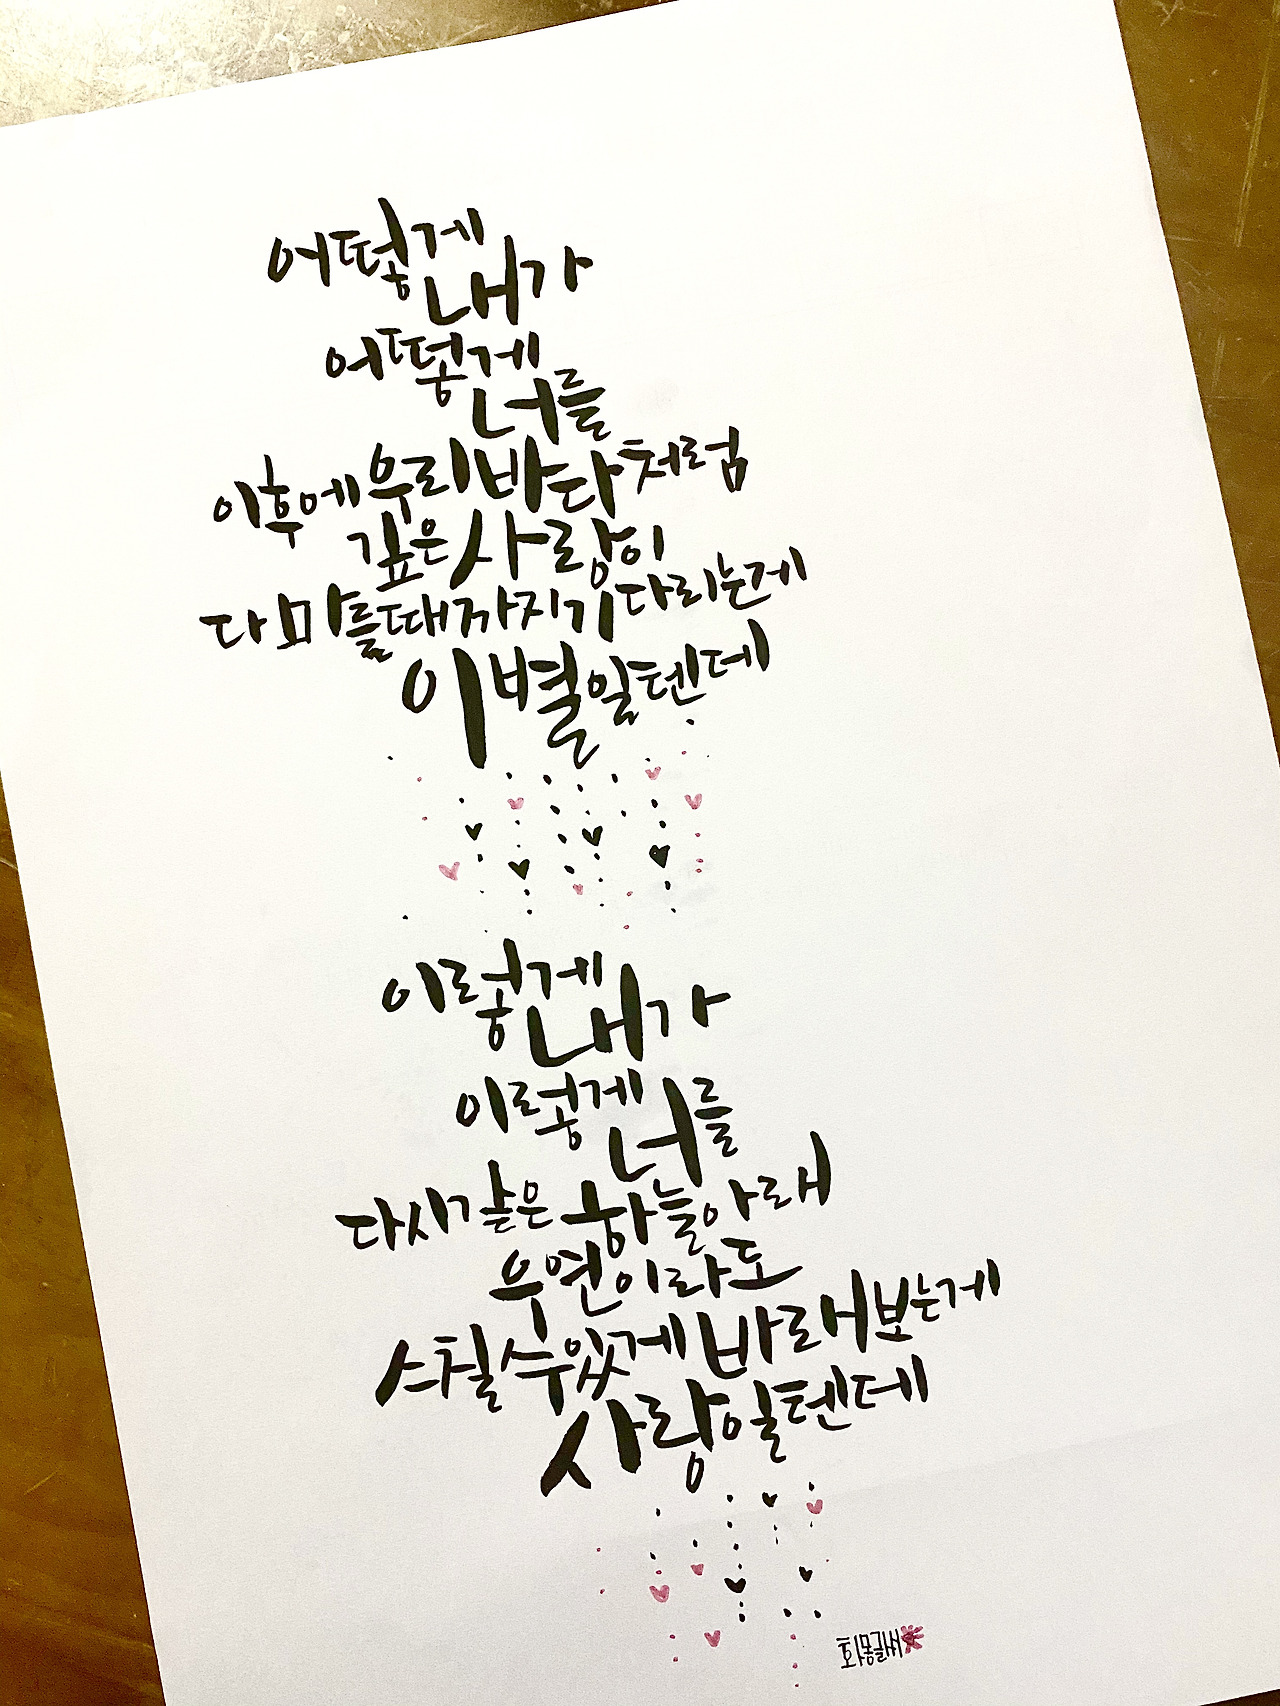 어떻게 내가
어떻게 너를
이후에 우리 바다처럼
깊은 사랑이
다 마를 때까지 기다리는게
이별일텐데
이렇게 내가
이렇게 너를
다시 같은 하늘 아래
우연이라도
스칠 수 있게 바래보는게
사랑일텐데
화몽글씨